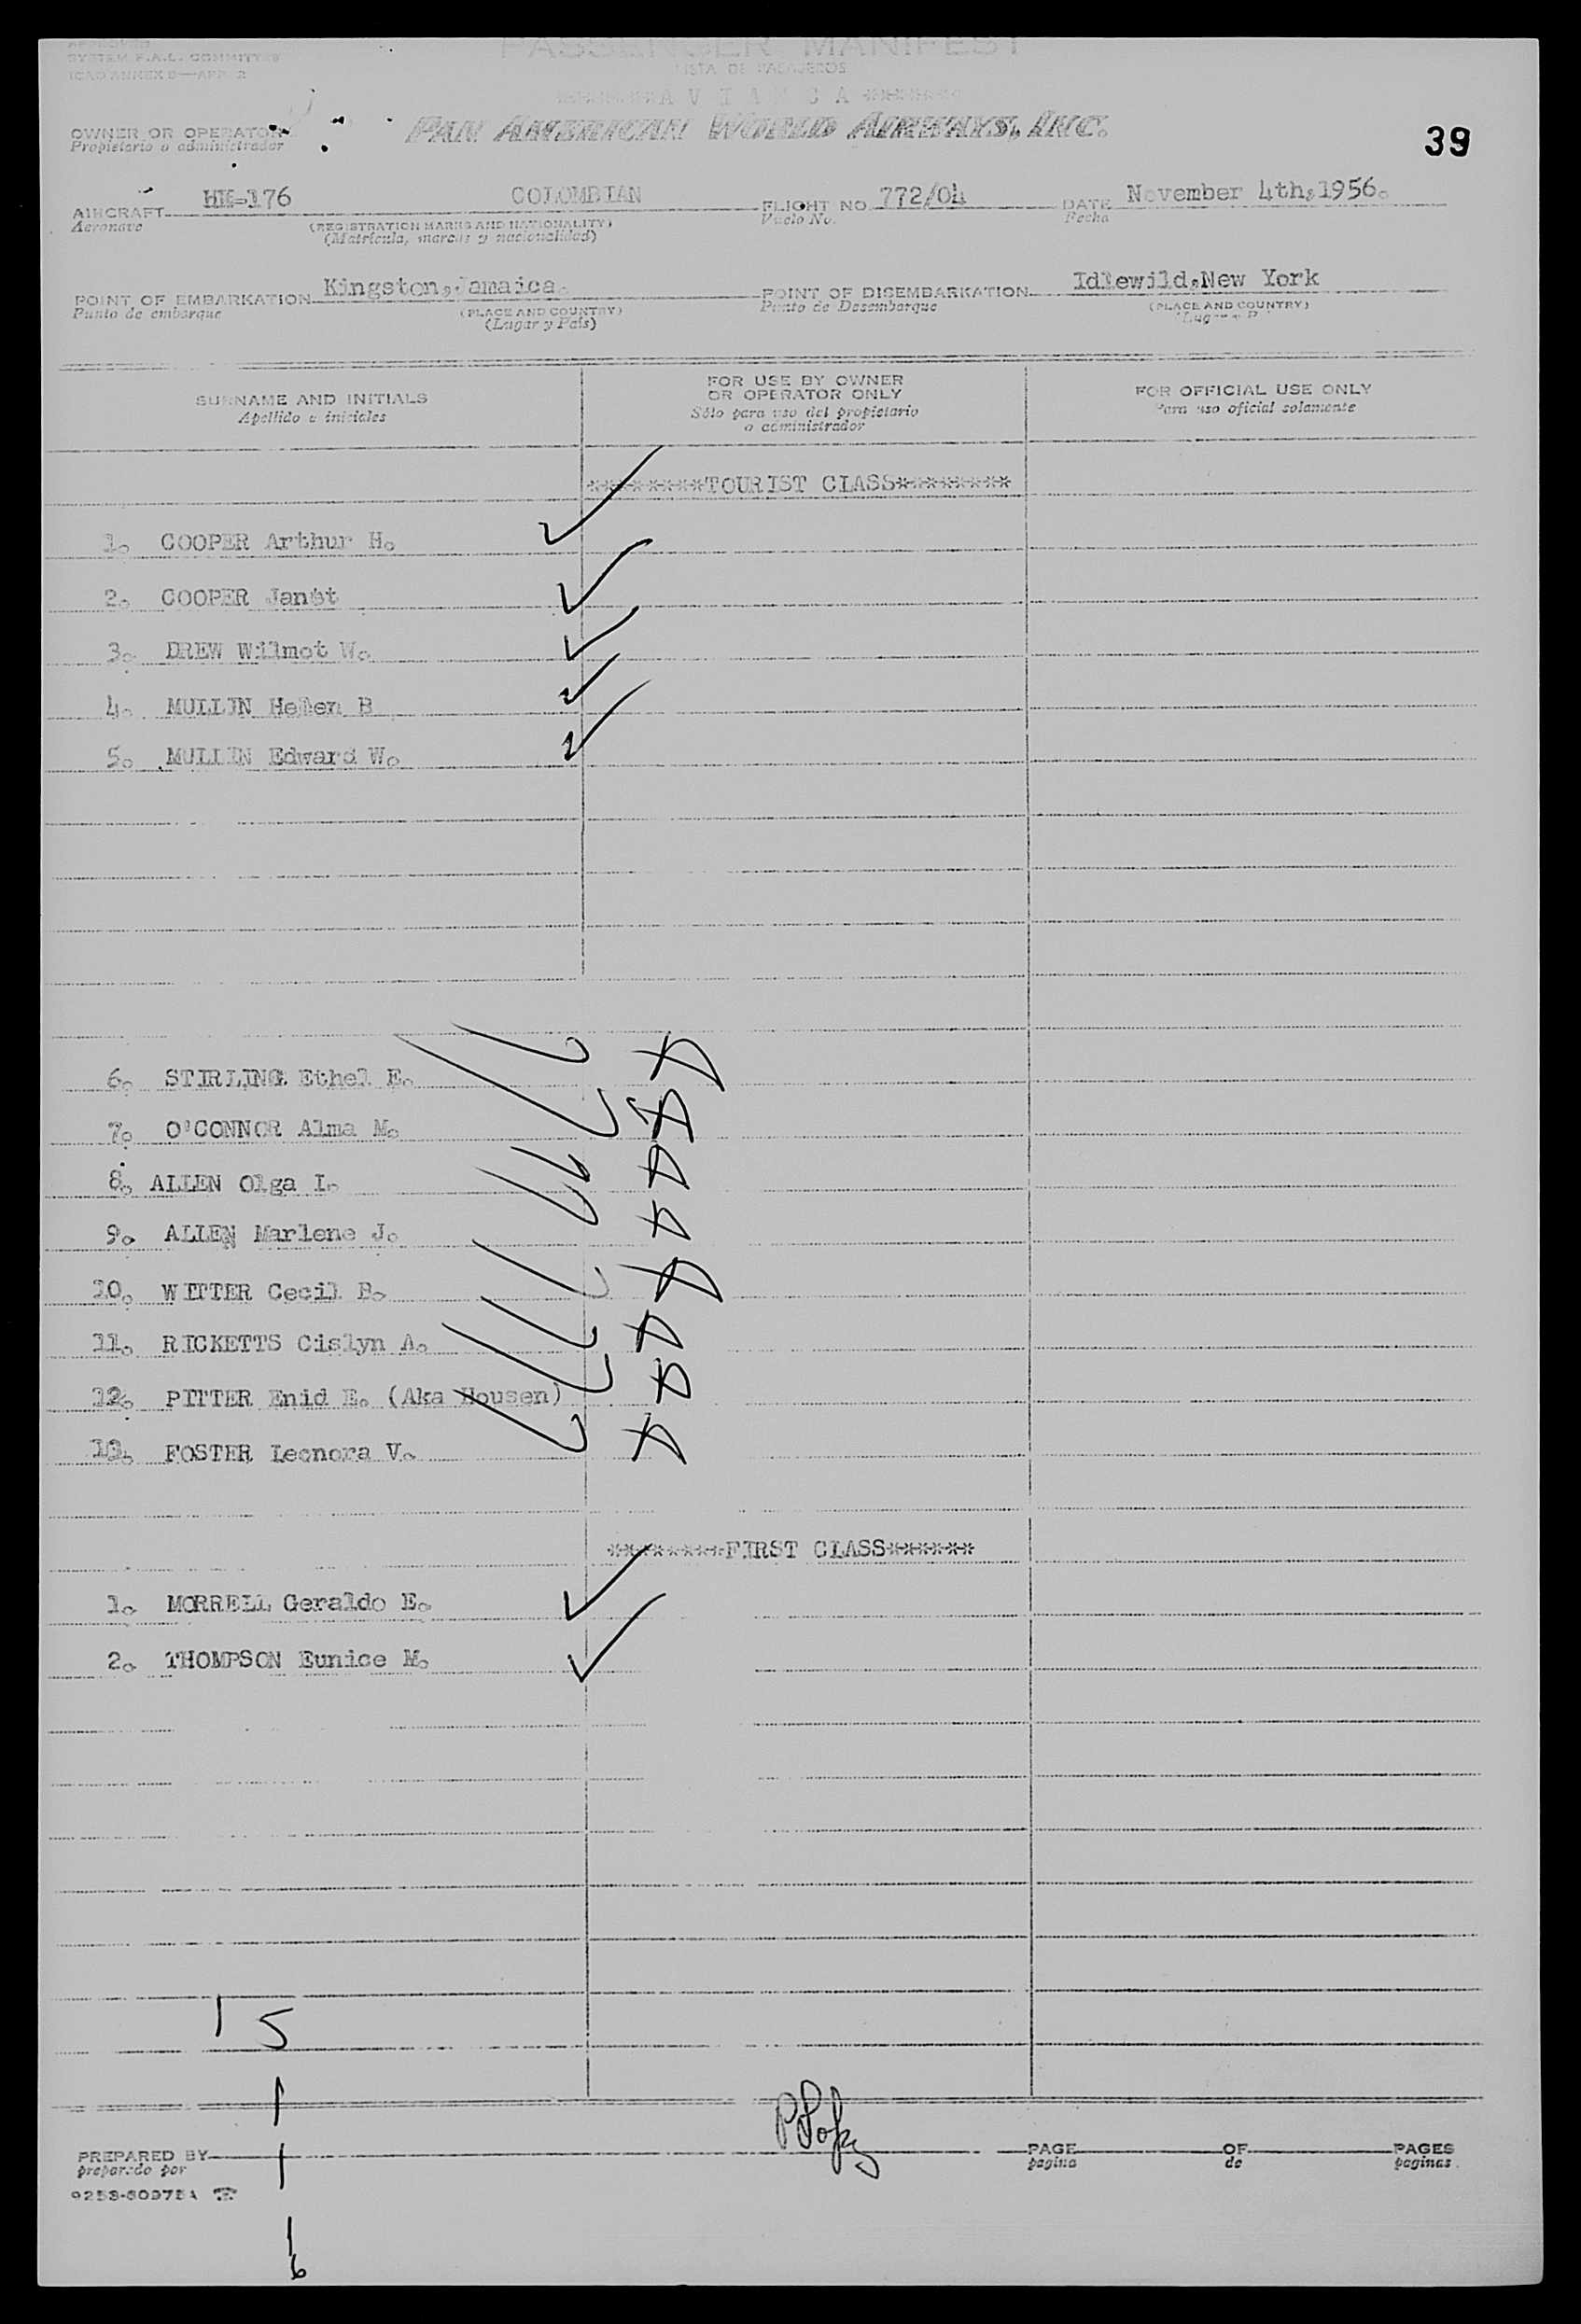 APPROVED
SYSTEM F.A.L. COMMITTEE
ICAO ANNEX 9—APP. 2
PASSENGER MANIFEST
LISTA DE PASAJEROS
AVIANCA
OWNER OR OPERATOR
Propietario o administrador
PAN AMERICAN WORLD AIRWAYS, INC.
39
AIRCRAFT HK-176 COLOMBIAN FLIGHT NO. 772/04 DATE November 4th,1956.
Aeronave (REGISTRATION MARKS AND NATIONALITY) Vuelo No. Fecha
(Matrícula, marcas y nacionalidad)
POINT OF EMBARKATION Kingston,Jamaica. POINT OF DISEMBARKATION Idlewild,New York
Punto de embarque (PLACE AND COUNTRY) Punto de Desembarque (PLACE AND COUNTRY)
(Lugar y País)
SURNAME AND INITIALS
Apellido e iniciales
FOR USE BY OWNER
OR OPERATOR ONLY
Sólo para uso del propietario
o administrador
FOR OFFICIAL USE ONLY
Para uso oficial solamente
********TOURIST CLASS********
1. COOPER Arthur H.
2. COOPER Janet
3. DREW Wilmot W.
4. MULLIN Hellen B
5. MULLIN Edward W.
6. STIRLING Ethel E.
7. O'CONNOR Alma M.
8. ALLEN Olga I.
9. ALLEN Marlene J.
10. WITTER Cecil B.
11. RICKETTS Cislyn A.
12. PITTER Enid E. (Aka Housen)
13. FOSTER Leonora V.
********FIRST CLASS******
1. MORRELL Geraldo E.
2. THOMPSON Eunice M.
15
1
1
16
PREPARED BY PAGE OF PAGES
preparado por pagina de paginas